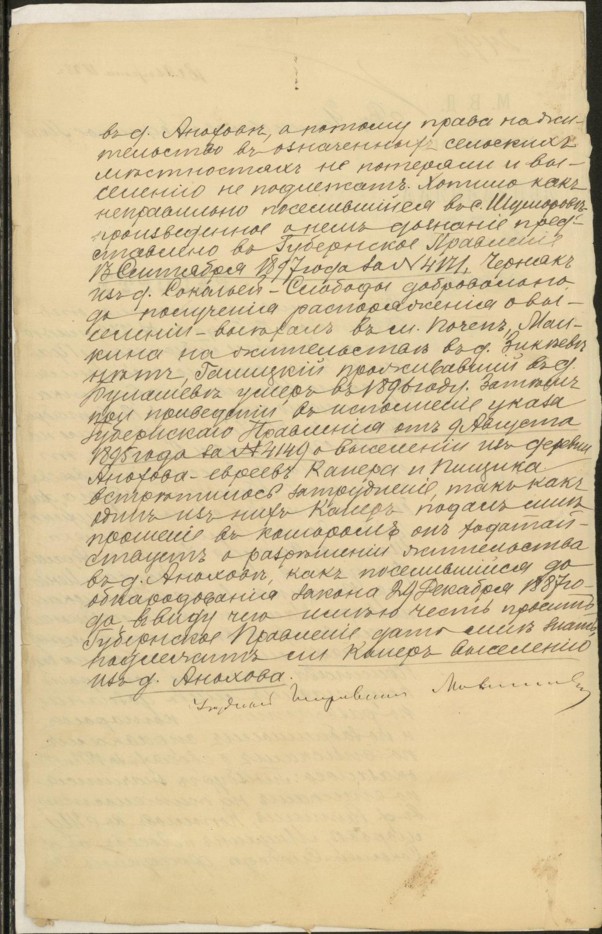 въ д. Анохове, а потому права на жи-
тельство въ означенныхъ сельскихъ
местностяхъ не потеряли и вы-
селенію не подлежатъ. Хотимо какъ
неправильно поселившійся въ с. Шуморовѣ
произведенное о немъ дознаніе пред-
ставлено въ Губернское Правленіе
13 Сентября 1897 года за № 4171, Чернякъ
изъ д. Сокольей-Слободы добровольно,
до полученія распоряженія о вы-
селеніи-выехалъ въ м. Почепъ, Мал-
кина на жительствѣ въ д.
нѣтъ, Галицкій проживавшій въ д.
умеръ въ 1896 году. Затѣмъ
при приведеніи въ исполненіе указа
Губернскаго Правленія отъ 9 Августа
1895 года за № 4149 о выселеніи изъ деревни
Анохова-евреевъ Капера и Пищика
встрѣтилось затрудненіе, такъ какъ
одинъ изъ нихъ Каперъ подалъ мнѣ
прошеніе въ которомъ онъ ходатай-
ствуетъ о разрѣшеніи жительства
въ д. Аноховѣ, какъ поселившійся до
обнародованія закона 29 Декабря 1887 го-
да, ввиду чего имѣю честь просить
Губернское Правленіе дать мнѣ знать,
подлежитъ ли Каперъ выселенію
изъ д. Анохова.
Уѣздный Исправникъ